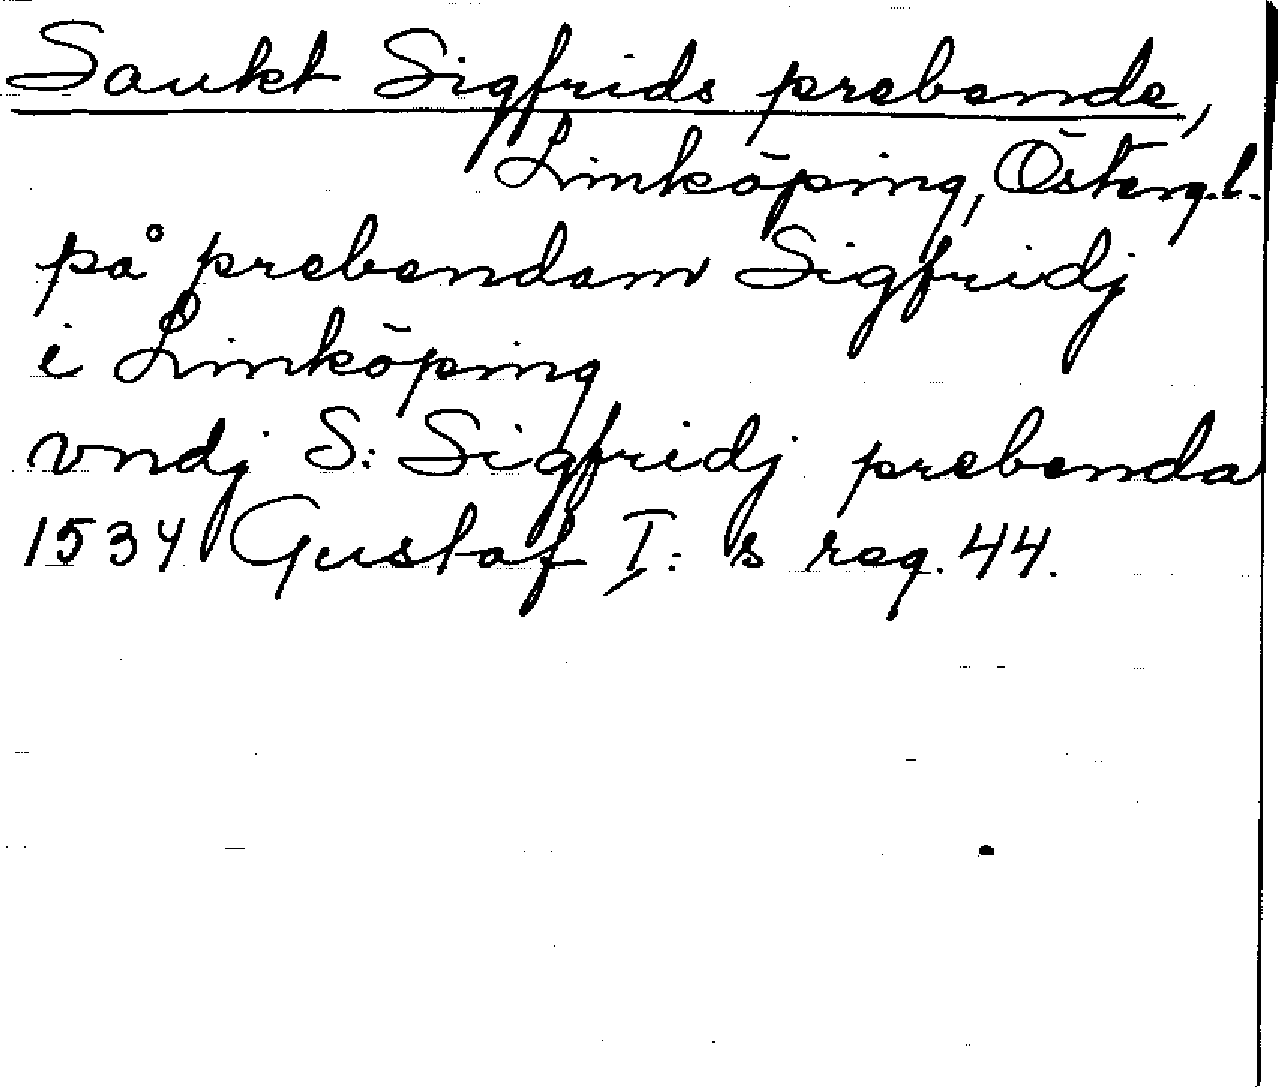 Sankt Sigfrids prebende,
Linköping, Österg.l.
på prebendam Sigfridj
i Linköping
vndj S: Sigfridj prebenda
1534 Gustaf I: s reg. 44.